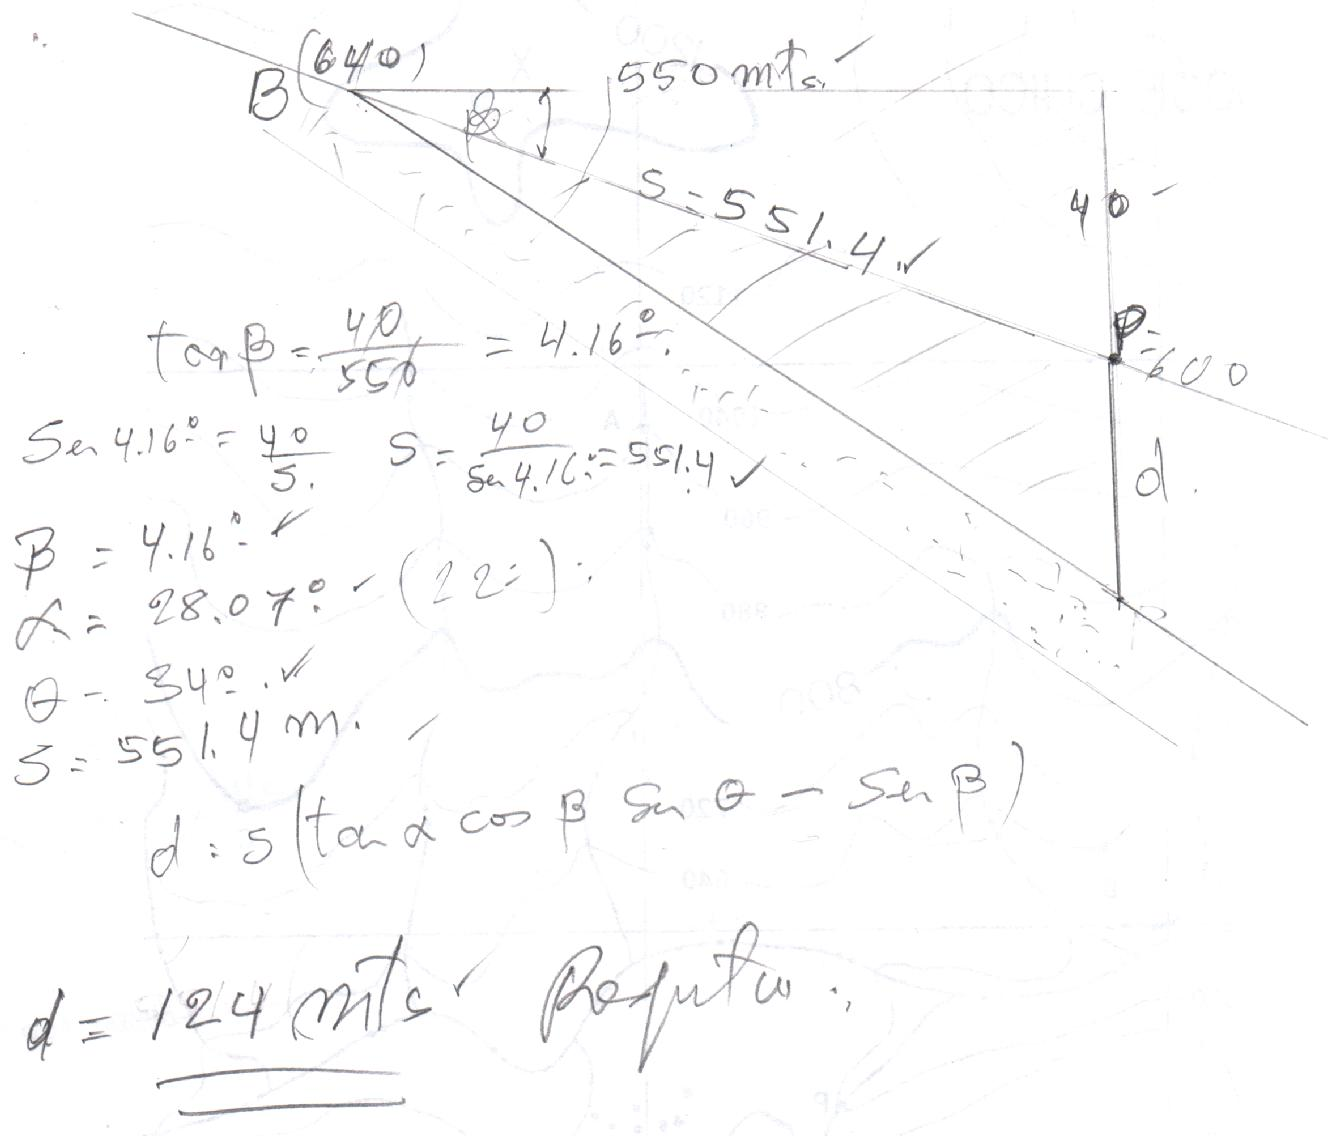 B (640)
550 mts.
β
S = 551.4 ✓
40
P = 600
d.
tan β = 40/550 = 4.16º.
Sen 4.16º = 40/S. S = 40/Sen 4.16º = 551.4 ✓
β = 4.16º ✓
α = 28.07º (22º).
θ = 34º. ✓
S = 551.4 m.
d = S (tan α cos β Sen θ - Sen β)
d = 124 mts